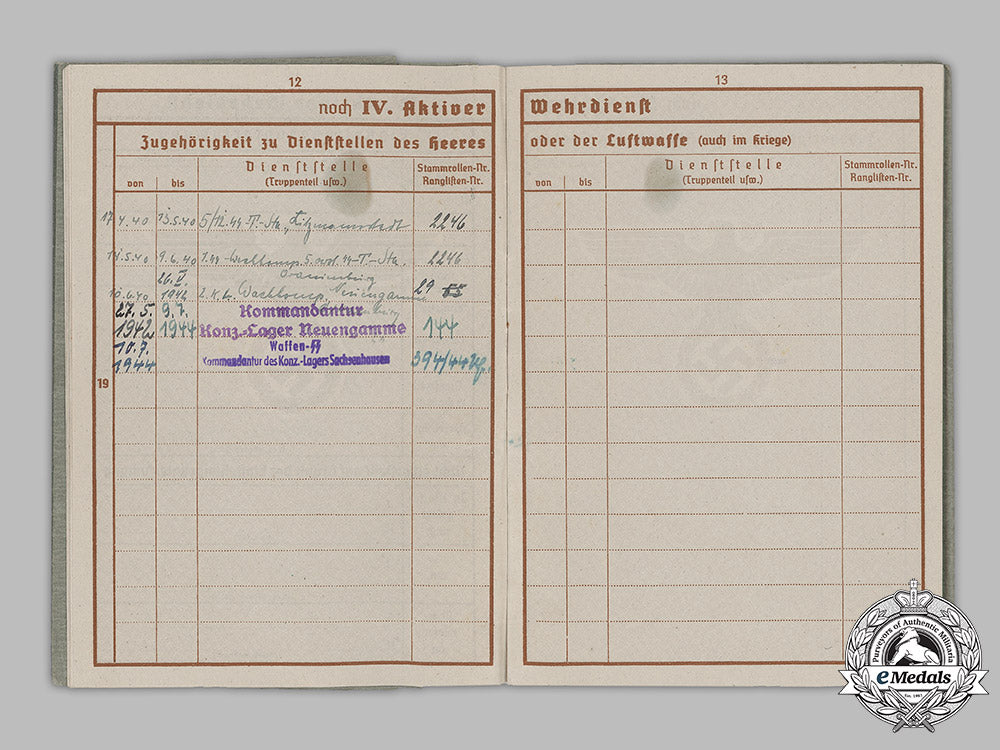 12
noch IV. Aktiver
Zugehörigkeit zu Dienststellen des Heeres
von bis Dienststelle (Truppenteil usw.) Stammrollen-Nr. Ranglisten-Nr.
17.4.40 13.5.40 5/12.SS-T.-Sta. "Litzmannstadt 2246
14.5.40 9.6.40 2246
26.V.
Oranienburg
10.6.40 1942 2.K.L. Wachkomp. Neuengamme 29
27.5. 9.7. Kommandantur
1942 1944 Konz.-Lager Neuengamme 144
10.7. Waffen-SS
1944 Kommandantur des Konz.-Lagers Sachsenhausen 394/44
19
13
Wehrdienst
oder der Luftwaffe (auch im Kriege)
von bis Dienststelle (Truppenteil usw.) Stammrollen-Nr. Ranglisten-Nr.
Purveyors of Authentic Militaria
eMedals
Est. 1967